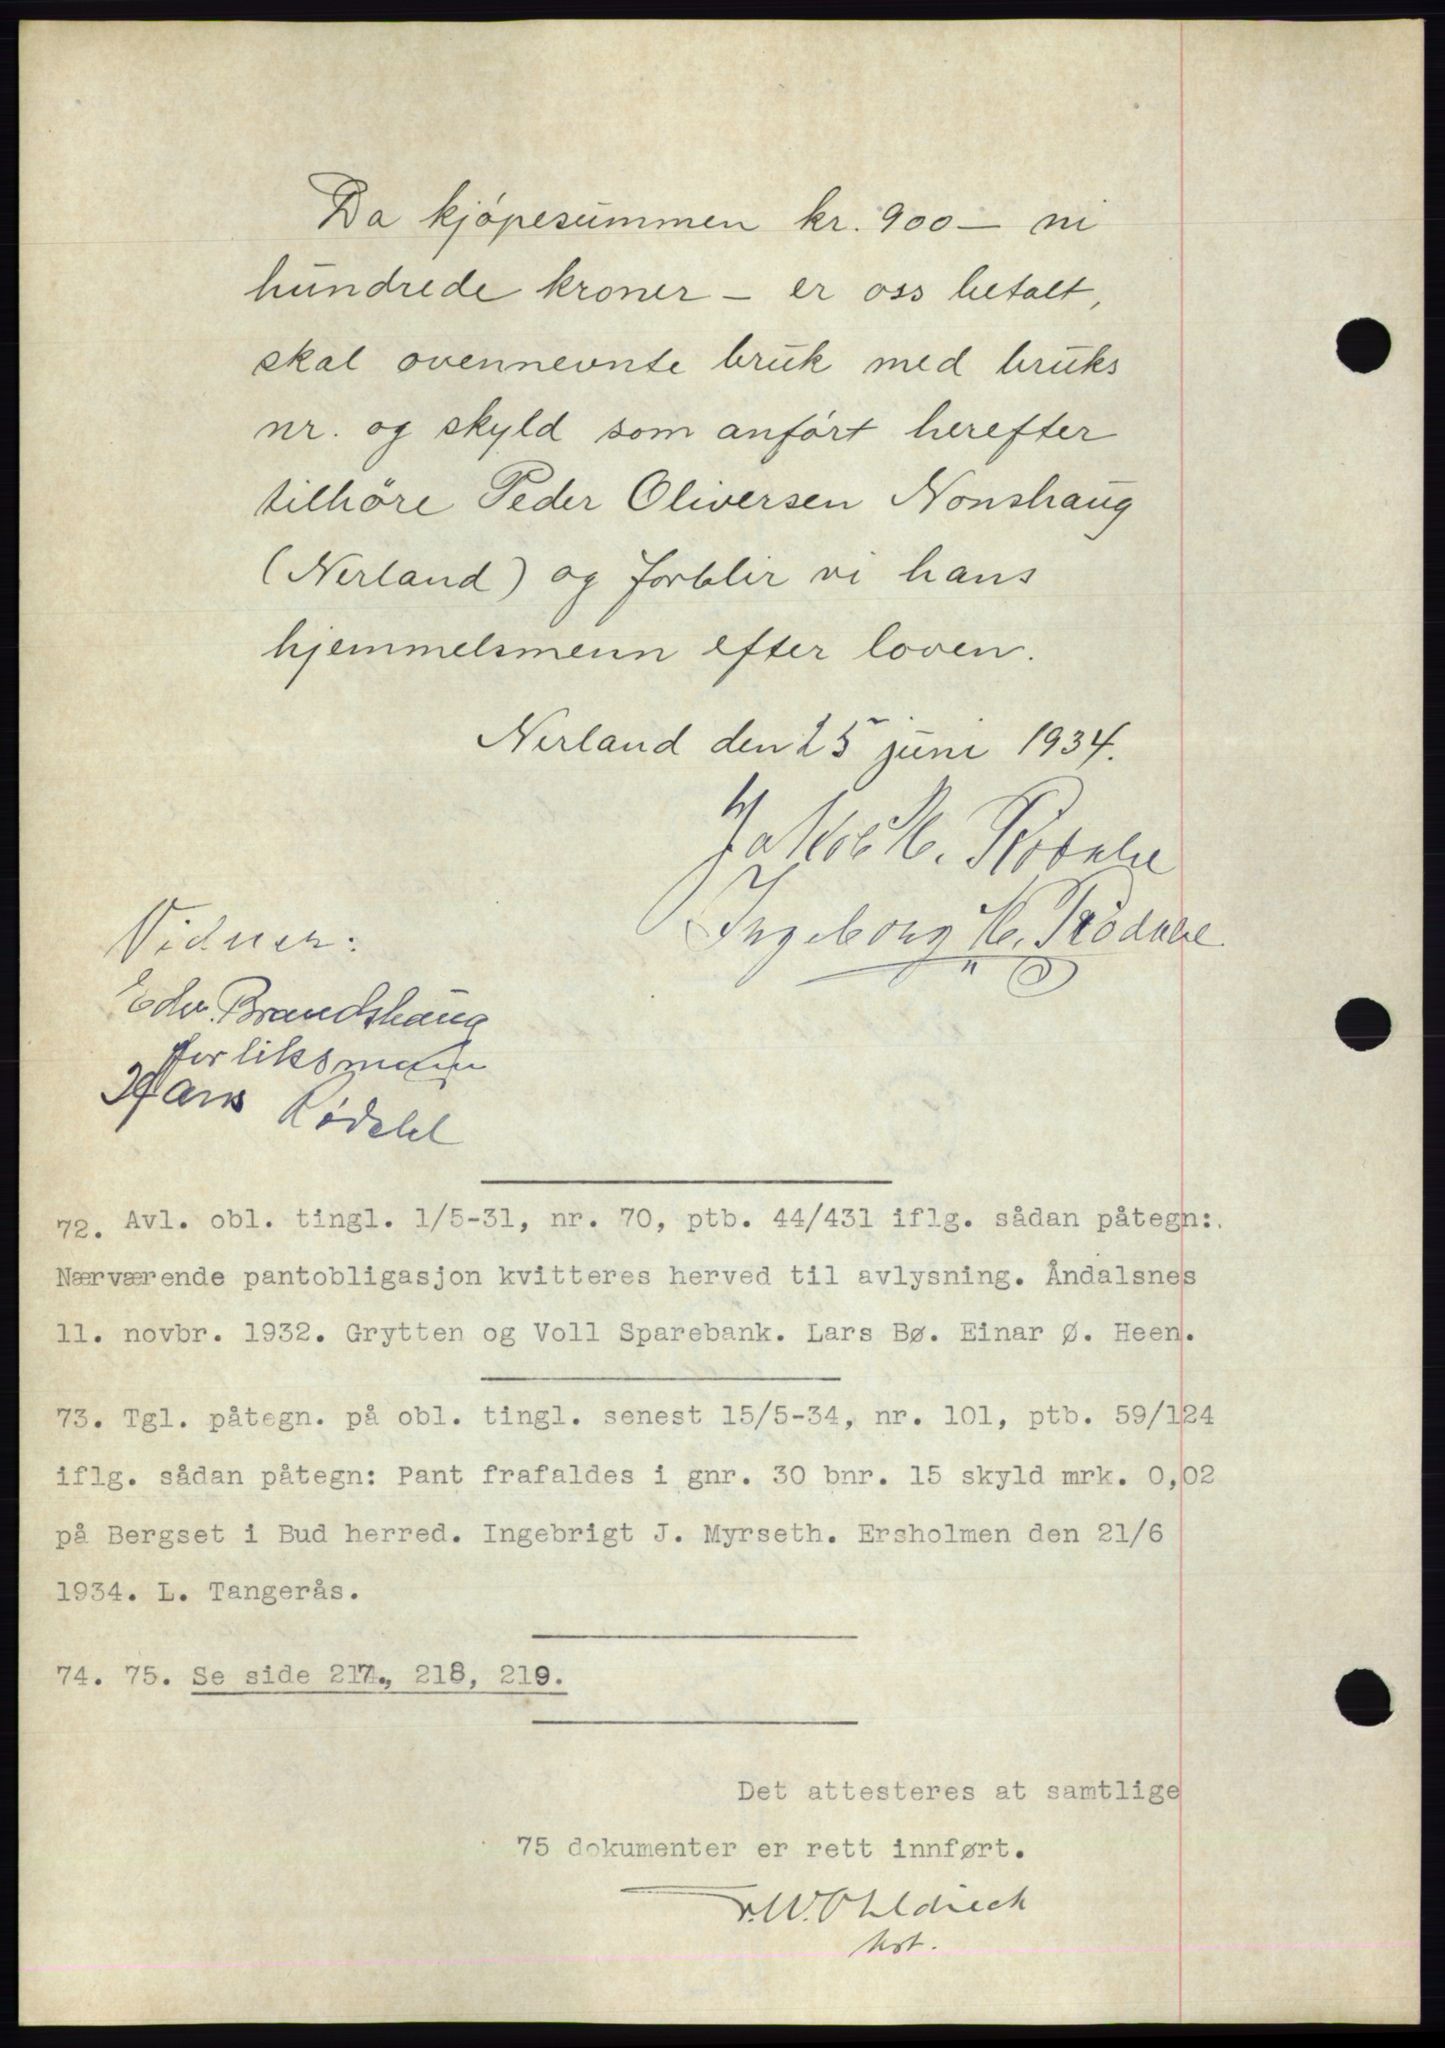 Da kjöpesummen kr. 900 — ni
hundrede kroner — er oss betalt,
skal ovennevnte bruk med bruks
nr. og skyld som anført herefter
tilhöre Peder Oliversen Nonshaug
(Nerland) og forblir vi hans
hjemmelsmenn efter loven.
Nerland den 25 juni 1934.
Jakob H.
Ingeborg H.
Vidner:
Edv. Brandshaug
forliksmann
Hans Rødahl
72. Avl. obl. tingl. 1/5-31, nr. 70, ptb. 44/431 iflg. sådan påtegn:
Nærværende pantobligasjon kvitteres herved til avlysning. Åndalsnes
11. novbr. 1932. Grytten og Voll Sparebank. Lars Bø. Einar Ø. Heen.
73. Tgl. påtegn. på obl. tingl. senest 15/5-34, nr. 101, ptb. 59/124
iflg. sådan påtegn: Pant frafaldes i gnr. 30 bnr. 15 skyld mrk. 0,02
på Bergset i Bud herred. Ingebrigt J. Myrseth. Ersholmen den 21/6
1934. L. Tangerås.
74. 75. Se side 217., 218, 219.
Det attesteres at samtlige
75 dokumenter er rett innført.